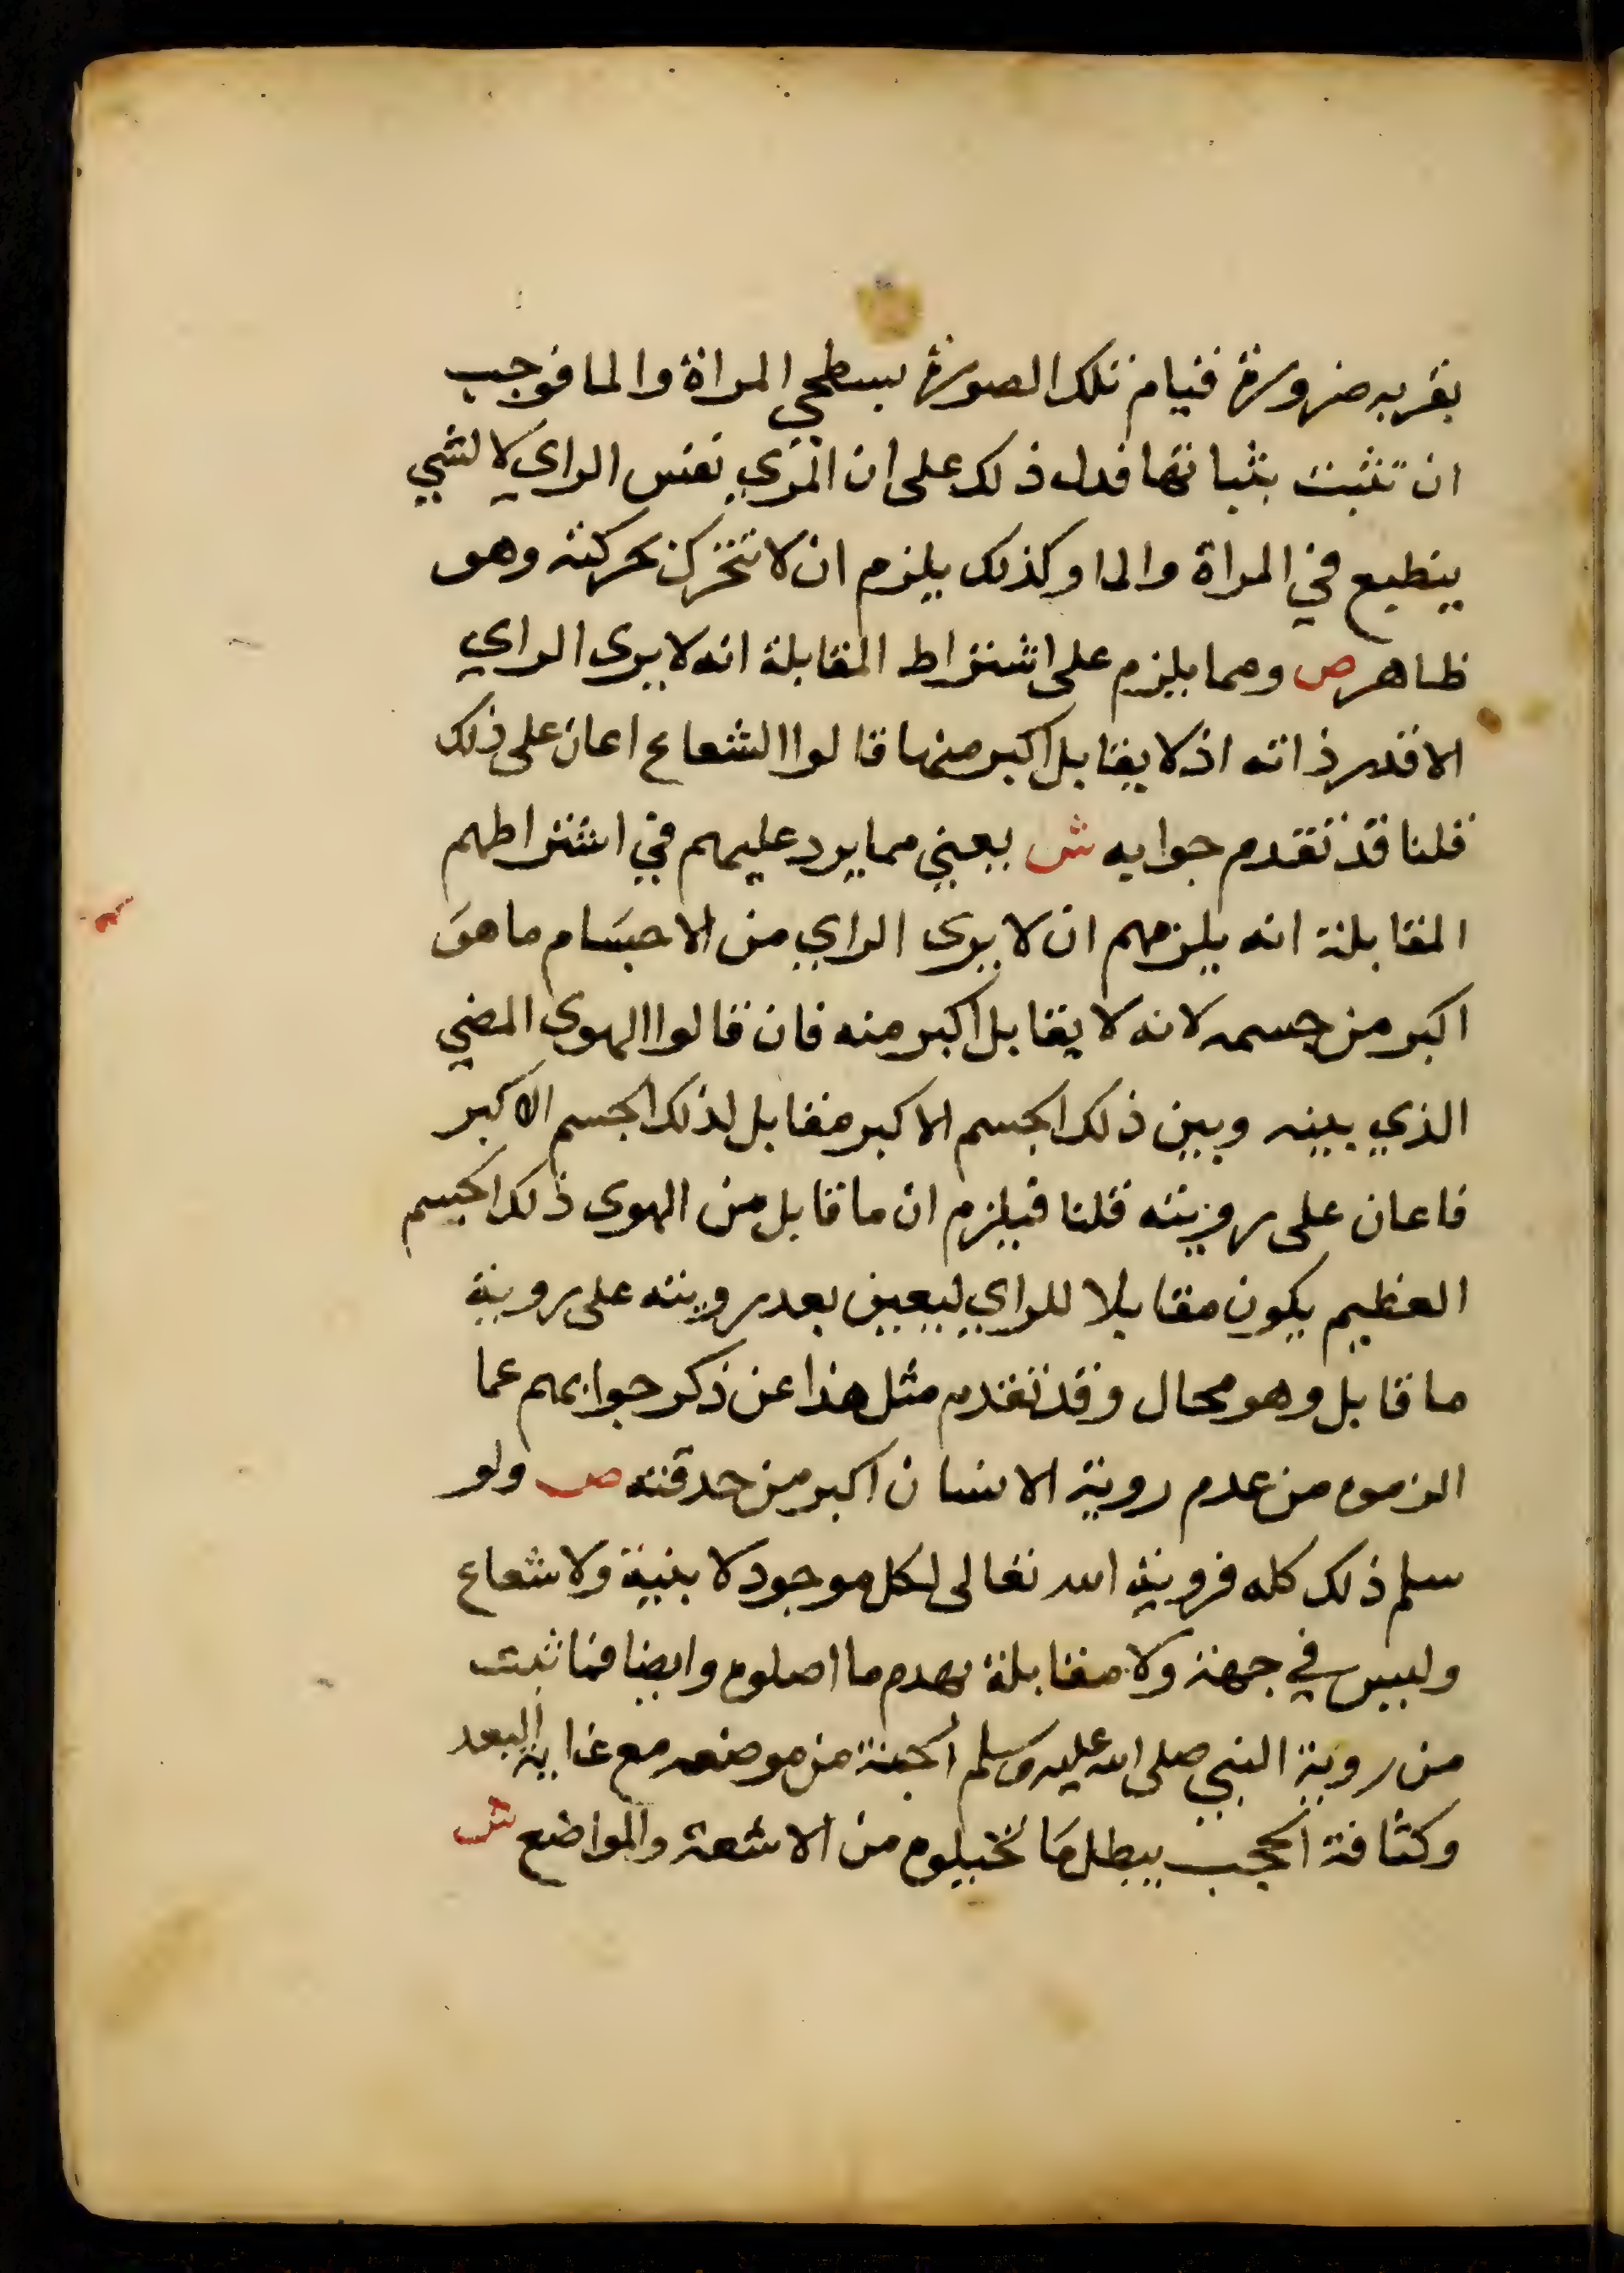 بقربه ضرورة قيام تلك الصورة بسطحي المراة والما فوجب
ان تثبت بثباتها فدل ذلك على ان المري نفس الراي لا لشي
ينطبع في المراة والما وكذلك يلزم ان لا تتحرك بحركته وهو
ظاهر ص ومما يلزم على اشتراط المقابلة انه لا يرى الراي
الا قدر ذاته اذ لا يقابل اكبر منها قالوا الشعاع اعان على ذلك
قلنا قد تقدم جوابه ش يعني مما يرد عليهم في اشتراطهم
المقابلة انه يلزمهم ان لا يرى الراي من الاجسَام ما هوَ
اكبر من جسمه لانه لا يقابل اكبر منه فان قالوا الهوى المضي
الذي بينه وبين ذلك الجسم الاكبر مقابل لذلك الجسم الاكبر
فاعان على رويته قلنا فيلزم ان ما قابل من الهوى ذلك الجسم
العظيم يكون مقابلا للراي ليعين بعد رويته على روية
ما قابل وهو محال وقد تقدم مثل هذا عن ذكر جوابهم عما
الزموه من عدم روية الانسان اكبر من حدقته ص ولو
سلم ذلك كله فروية الله تعالى لكل موجود لا بنية ولا شعاع
وليس في جهة ولا مقابلة يهدم ما اصلوه وايضا فما ثبت
من روية النبي صلى الله عليه وسلم الجنة من موضعه مع غاية البعد
وكثافة الحجب يبطل مَا تخيلوه من الاشعة والمواضع ش